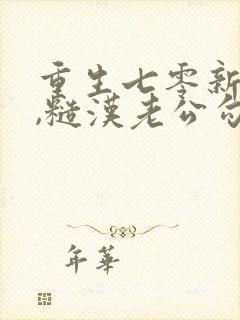 重生七零新
,糙漢老公勾
年華